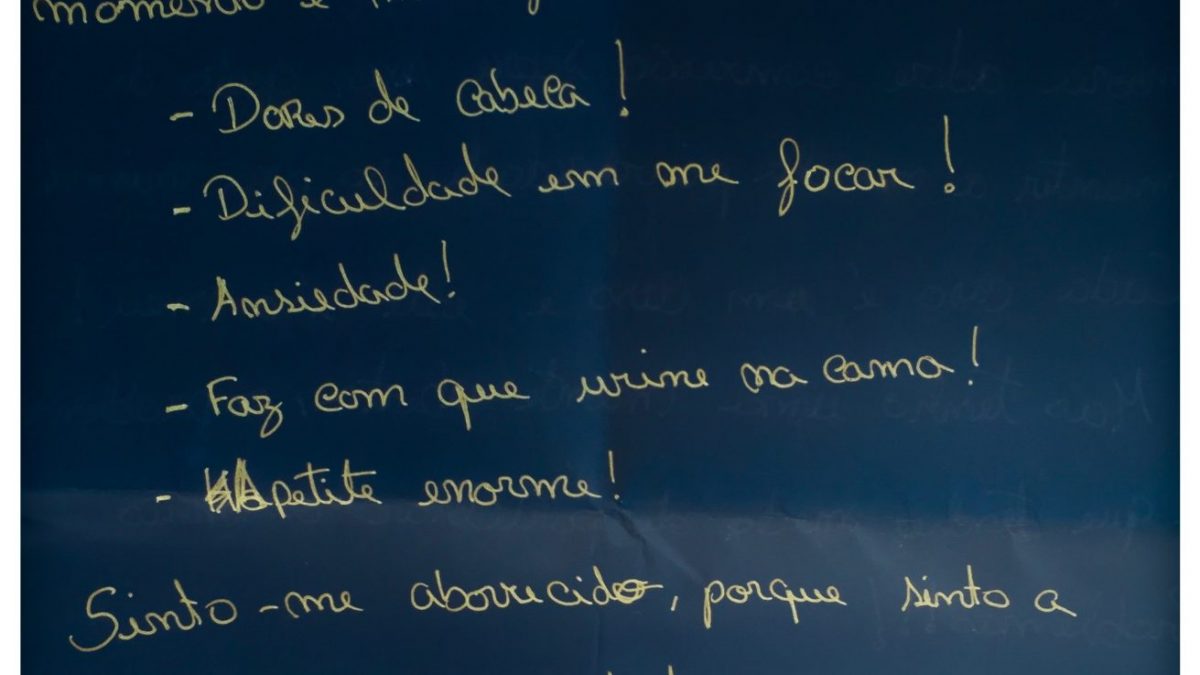 momento é
- Dores de cabeça!
- Dificuldade em me focar!
- Ansiedade!
- Faz com que urine na cama!
- Apetite enorme!
Sinto-me aborrecido, porque sinto a